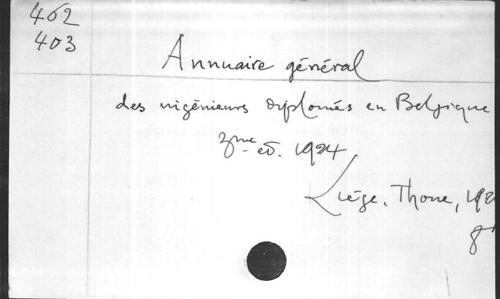 462
403
Annuaire général
des ingénieurs diplomés en Belgique
3me ed. 1924
Liége, Thone, 192
8°